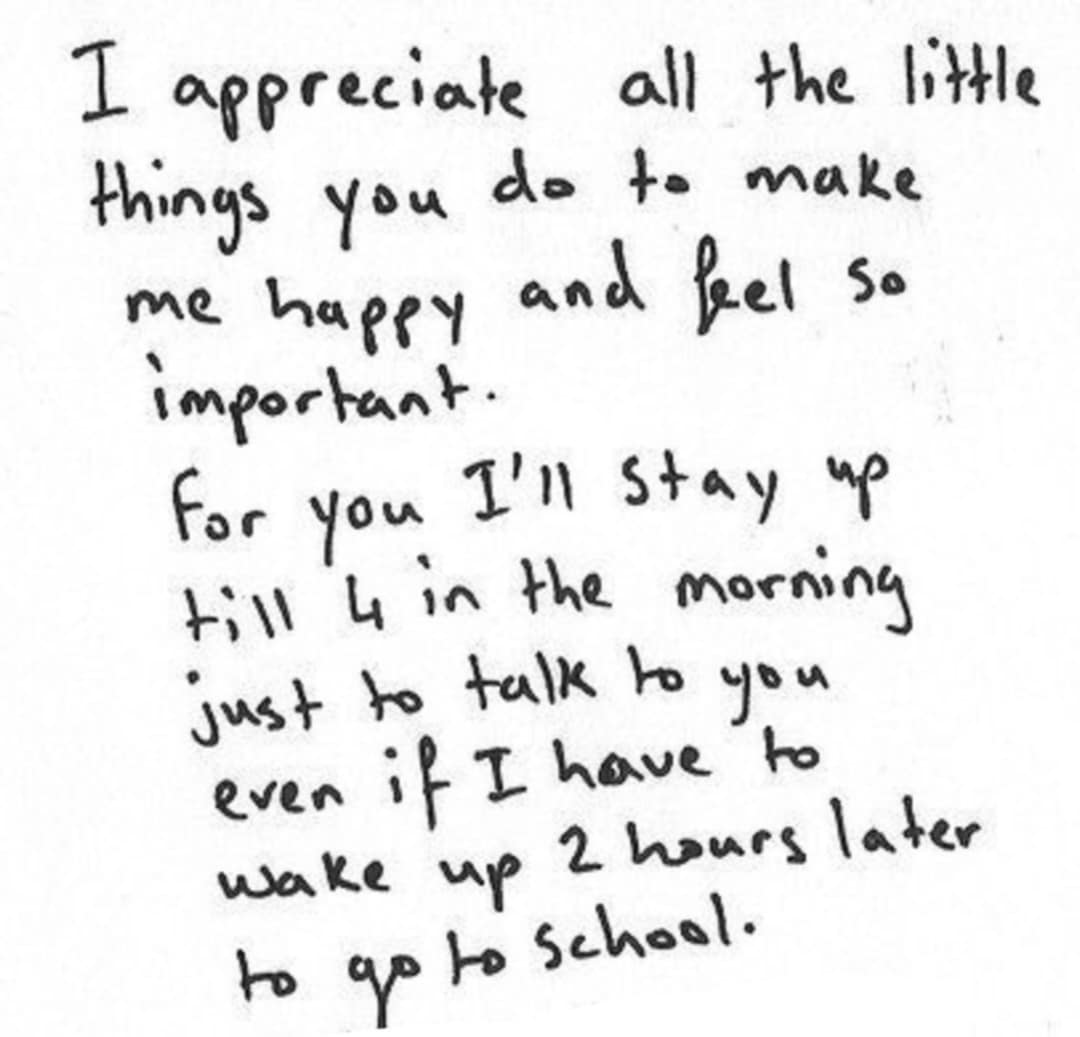 I appreciate all the little
things you do to make
me happy and feel so
important.
For you I'll stay up
till 4 in the morning
just to talk to you
even if I have to
wake up 2 hours later
to go to school.